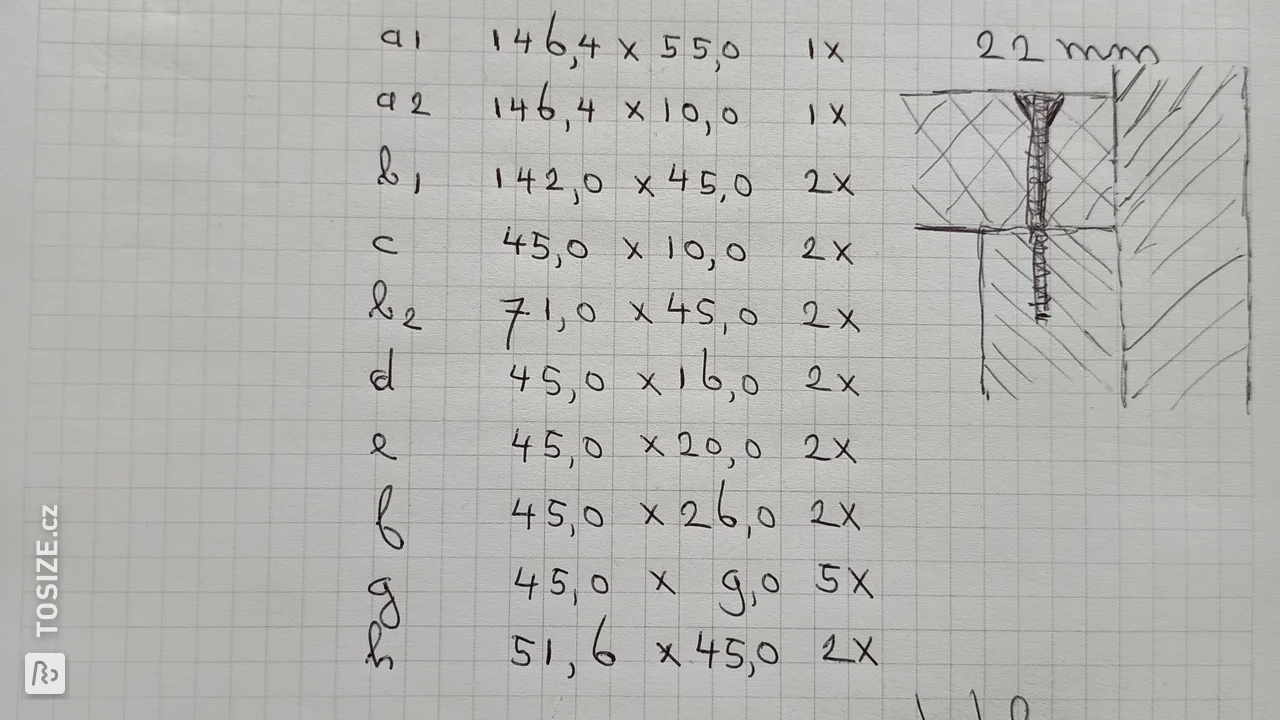 a1 146,4 x 55,0 1x
22 mm
a2 146,4 x 10,0 1x
b1 142,0 x 45,0 2x
c 45,0 x 10,0 2x
b2 71,0 x 45,0 2x
d 45,0 x 16,0 2x
e 45,0 x 20,0 2x
f 45,0 x 26,0 2x
g 45,0 x 9,0 5x
h 51,6 x 45,0 2x
TOSIZE.cz